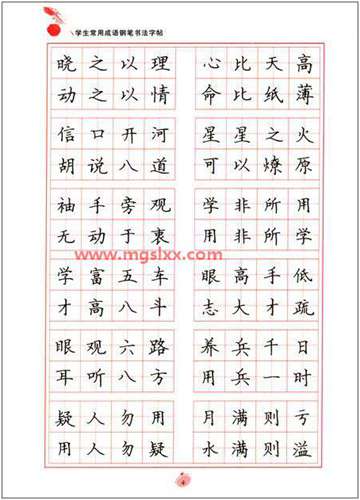 学生常用成语钢笔书法字帖
晓之以理 心比天高
动之以情 命比纸薄
信口开河 星星之火
胡说八道 可以燎原
袖手旁观 学非所用
无动于衷 用非所学
www.mgslxx.com
学富五车 眼高手低
才高八斗 志大才疏
眼观六路 养兵千日
耳听八方 用兵一时
疑人勿用 月满则亏
用人勿疑 水满则溢
4